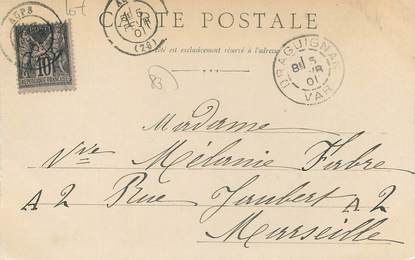 CARTE POSTALE
est exclusivement réservé à l'adresse
10
01
(28)
DRAGUIGNAN
5
01
VAR
83
Madame
Vve Mélanie Fabre
A 2 Rue Jaubert A 2
Marseille